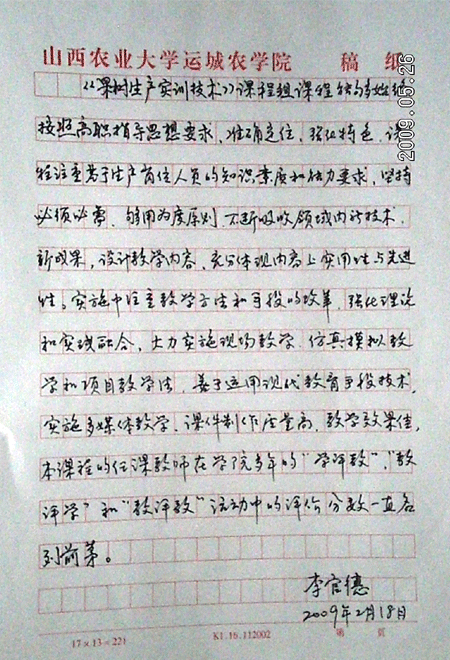 山西农业大学运城农学院 稿 纸
《果树生产实训技术》课程组课程能够始终
按照高职指导思想要求，准确定位，强化特色，课
程注重基于生产岗位人员的知识素质和能力要求，坚持
必须必需、够用为度原则，不断吸收领域内新技术、
新成果，设计教学内容，充分体现内容上实用性与先进
性。实施中注重教学方法和手段的改革，强化理论
和实践融合，大力实施现场教学、仿真模拟教
学和项目教学法，善于运用现代教育手段技术，
实施多媒体教学、课件制作质量高，教学效果佳，
本课程的任课教师在学院多年的"学评教"、"教
评学"和"教评教"活动中的评价分数一直名
列前茅。
李官德
2009年2月18日
17×13=221 K1.16.112002 第 页
2009.05.26